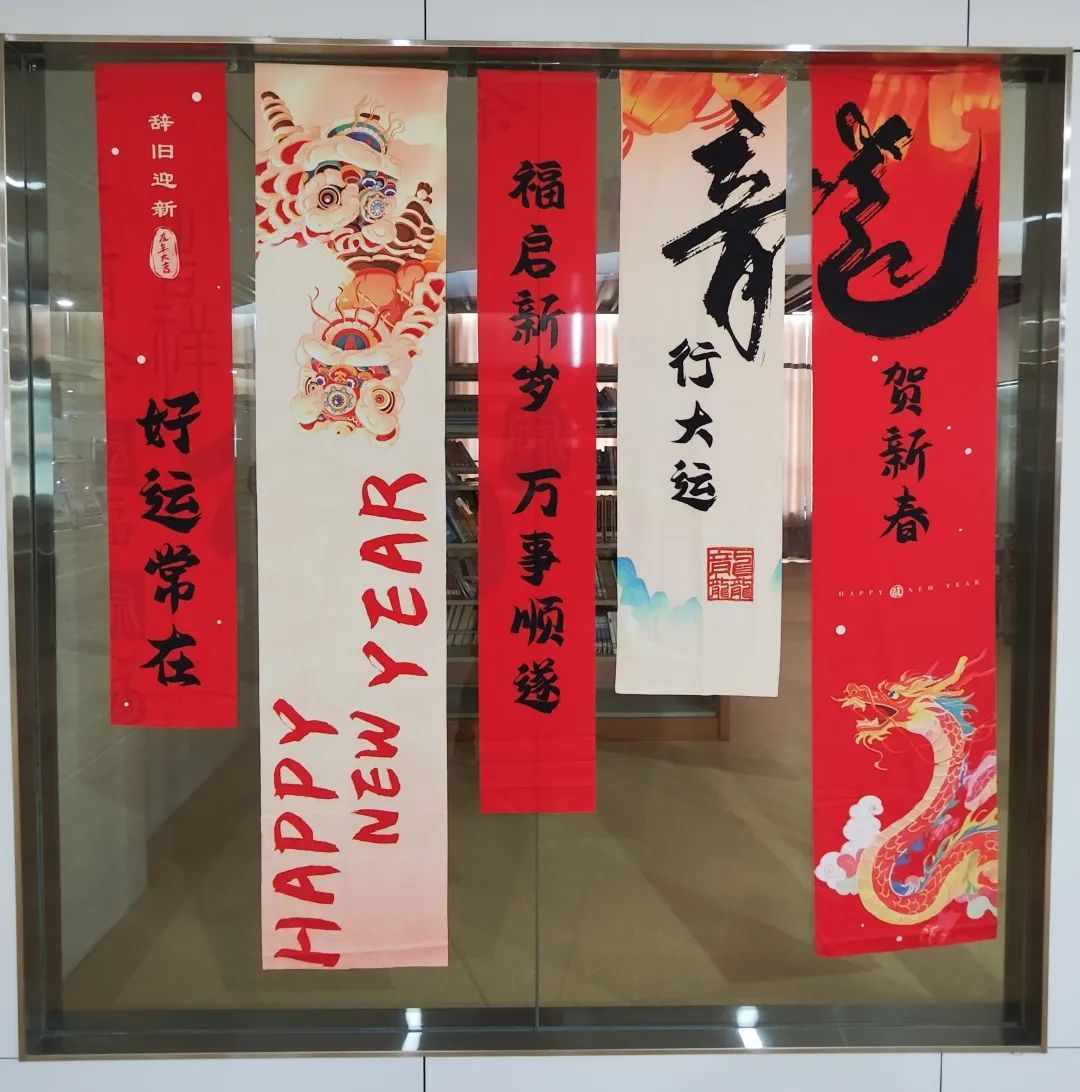 辞旧迎新
龙年大吉
好运常在
HAPPY
NEW YEAR
福启新岁 万事顺遂
龍
行大运
贺新春
HAPPY NEW YEAR